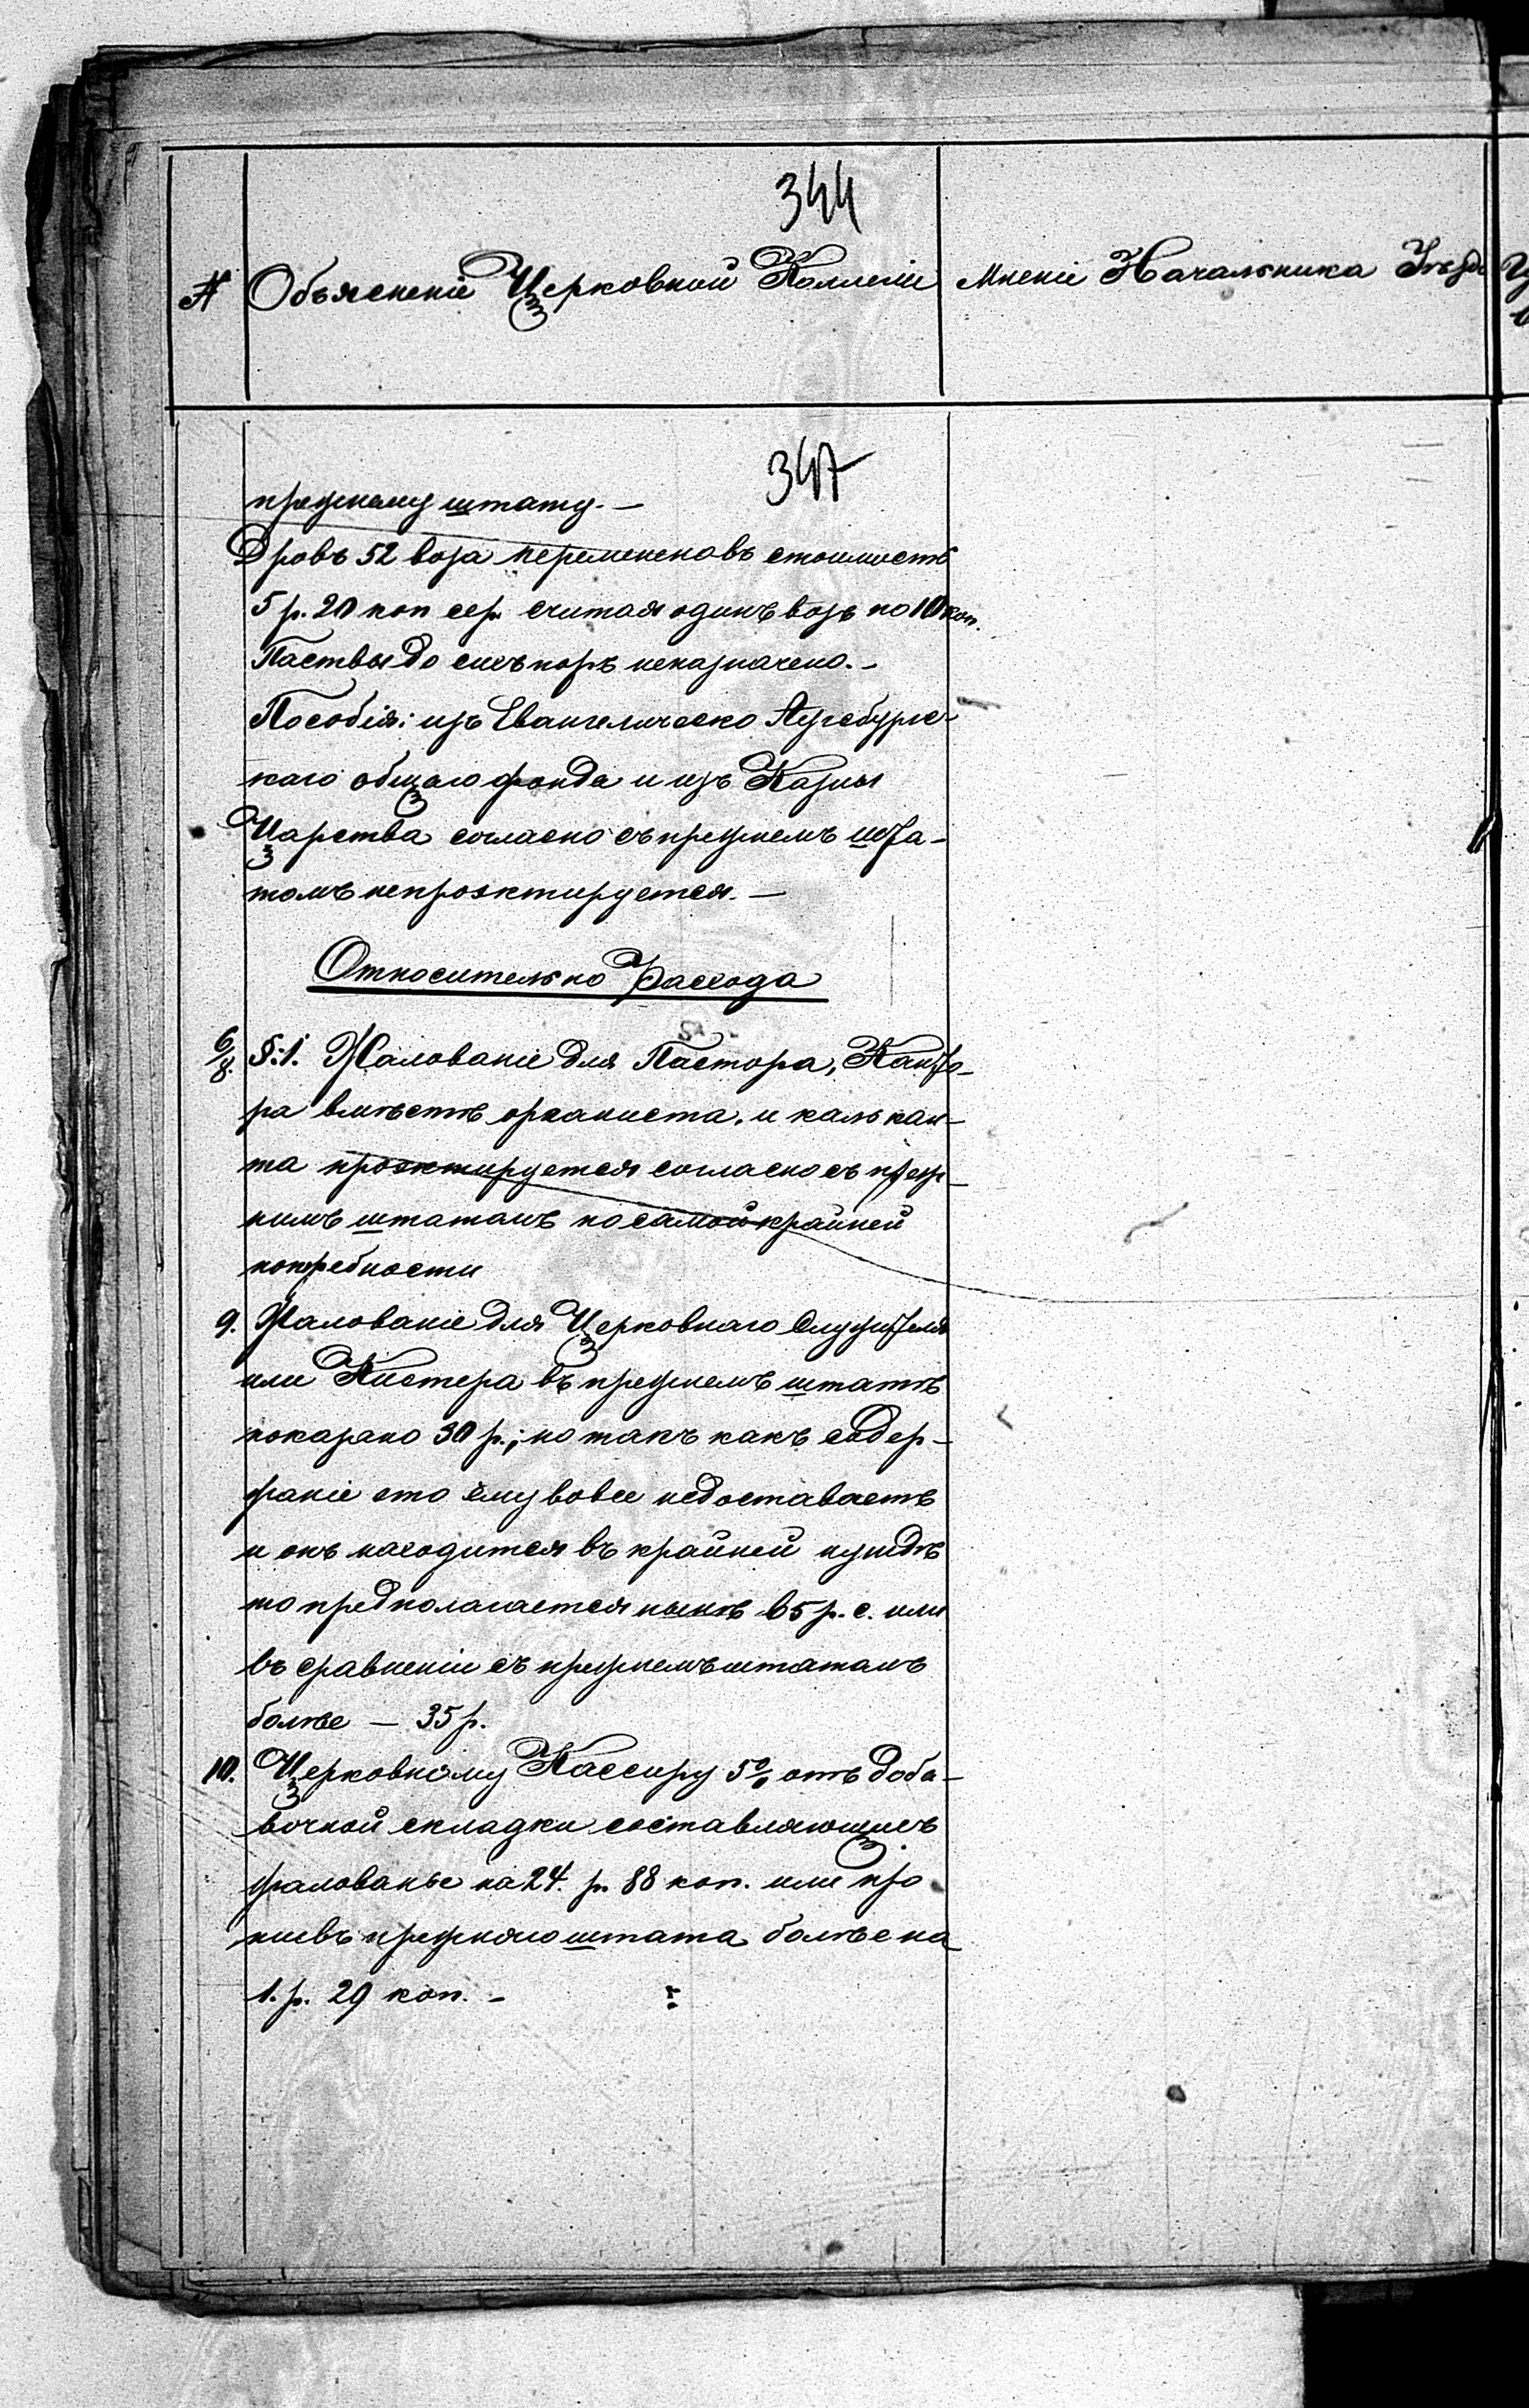 344
№ Объясненіе Церковной Коллегіи Мненіе Начальника Уѣзда
347
прежнему штату. —
Дровъ 52 воза перемененовъ стоимость
5 р. 20 коп сер. считая одинъ возъ по 10 коп.
Паствы до сихъ поръ неназначено. —
Пособія: изъ Евангелическо Аугсбургс-
каго общаго фонда и изъ Казны
Царства согласно съ прежнемъ шта-
томъ непроэктируется. —
Относительно Расхода
6/8. §:1. Жалованіе для Пастора, Канто-
ра вмѣстѣ органиста. и калькан-
та проэктируется согласно съ преж-
нимъ штатомъ по самой крайней
потребности
9. Жалованіе для Церковнаго Служителя
или Кистера въ прежнемъ штатѣ
показано 30 р.; но такъ какъ содер-
жаніе его ему вовсе недоставаетъ
и онъ находится въ крайней нуждѣ
то предполагается нынѣ 65 р. с. или
въ сравненіи съ прежнемъ штатомъ
болѣе — 35 р.
10. Церковному Кассиру 5% отъ доба-
вочной складки составляющихъ
жалованье на 24. р. 88 коп. или про
тивъ прежняго штата болѣе на
1. р. 29 коп. —